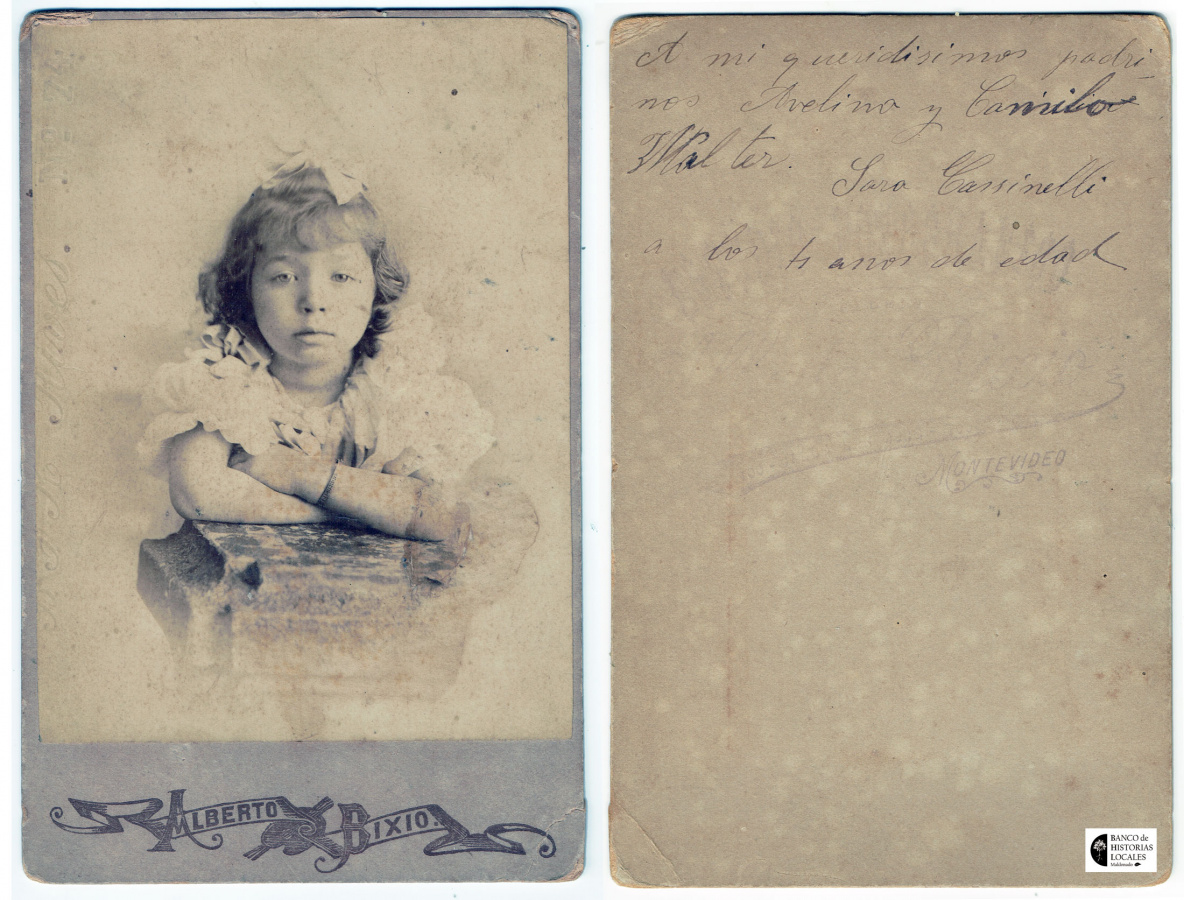 ALBERTO BIXIO.
A mi queridisimos padri
nos Avelino y Camilo
Walter.
Sara Cassinelli
a los 4 anos de edad
MONTEVIDEO
BANCO de
HISTORIAS
LOCALES
Maldonado